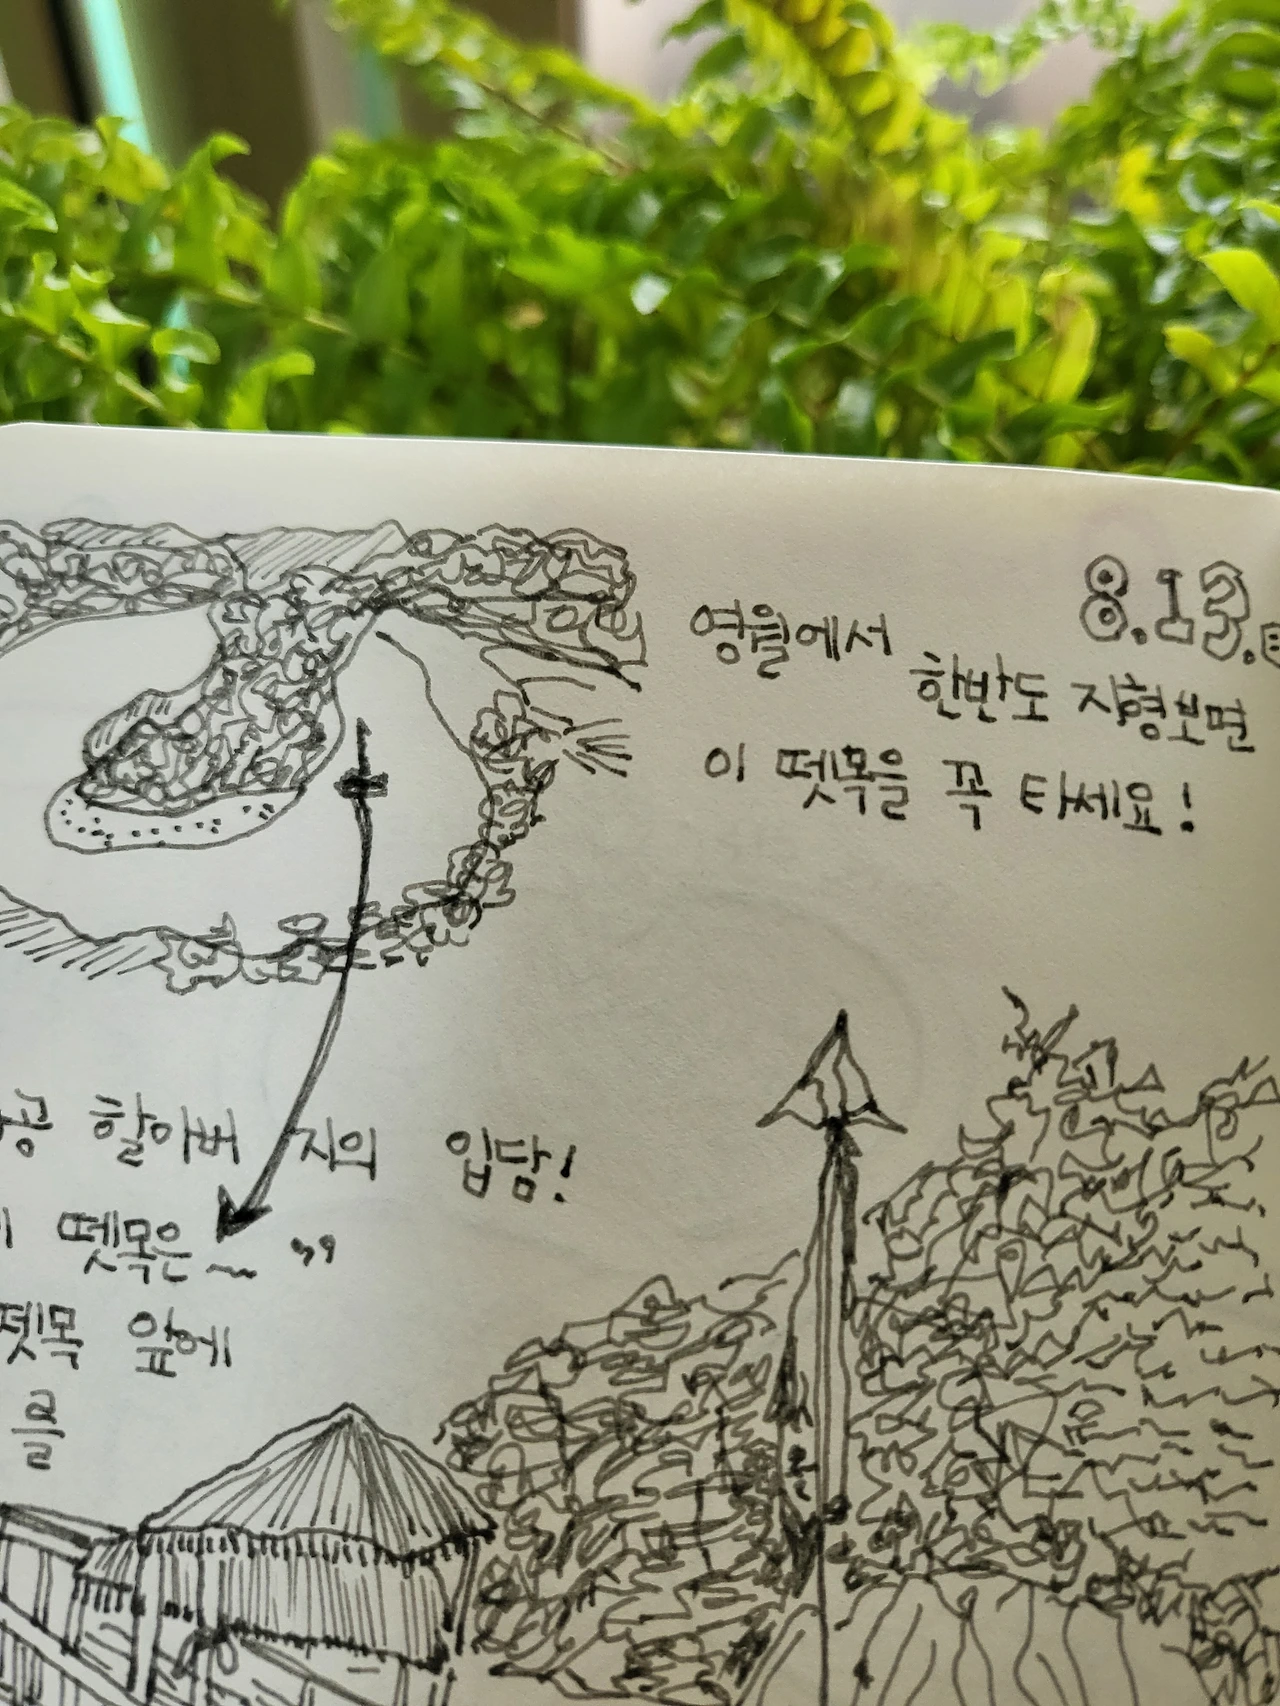 8.13.
영월에서
한반도 지형보면
이 뗏목을 꼭 타세요!
공 할아버지의 입담!
뗏목은~ "
뗏목 앞에
을